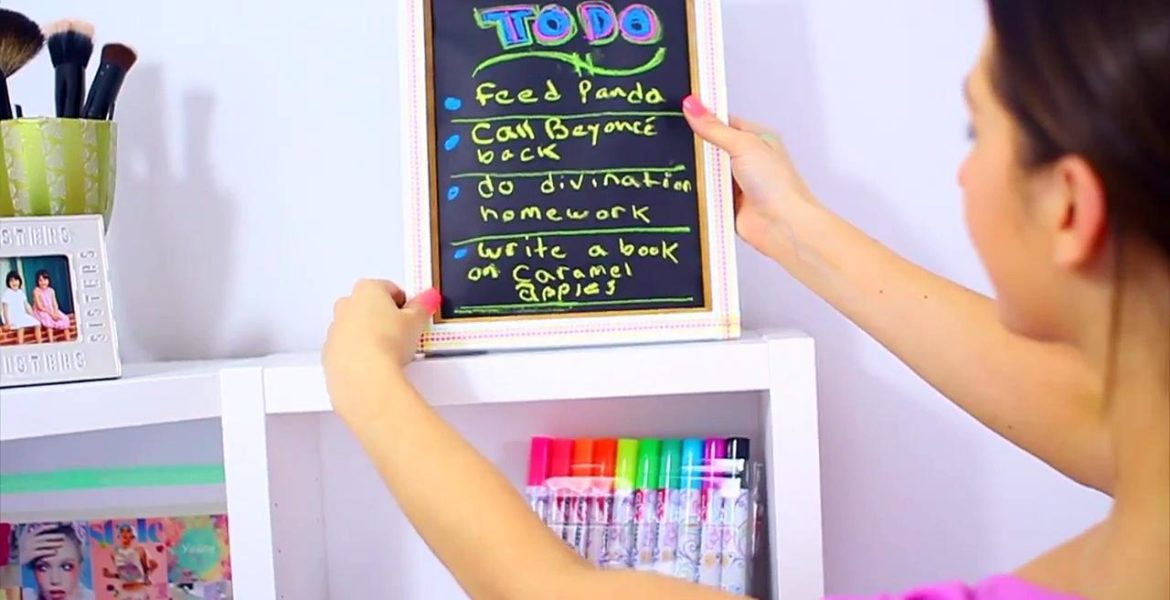 TO DO
Feed Panda
Call Beyoncé
back
do divination
homework
write a book
on Caramel
apples
SISTERS
SISTERS
SISTERS
style